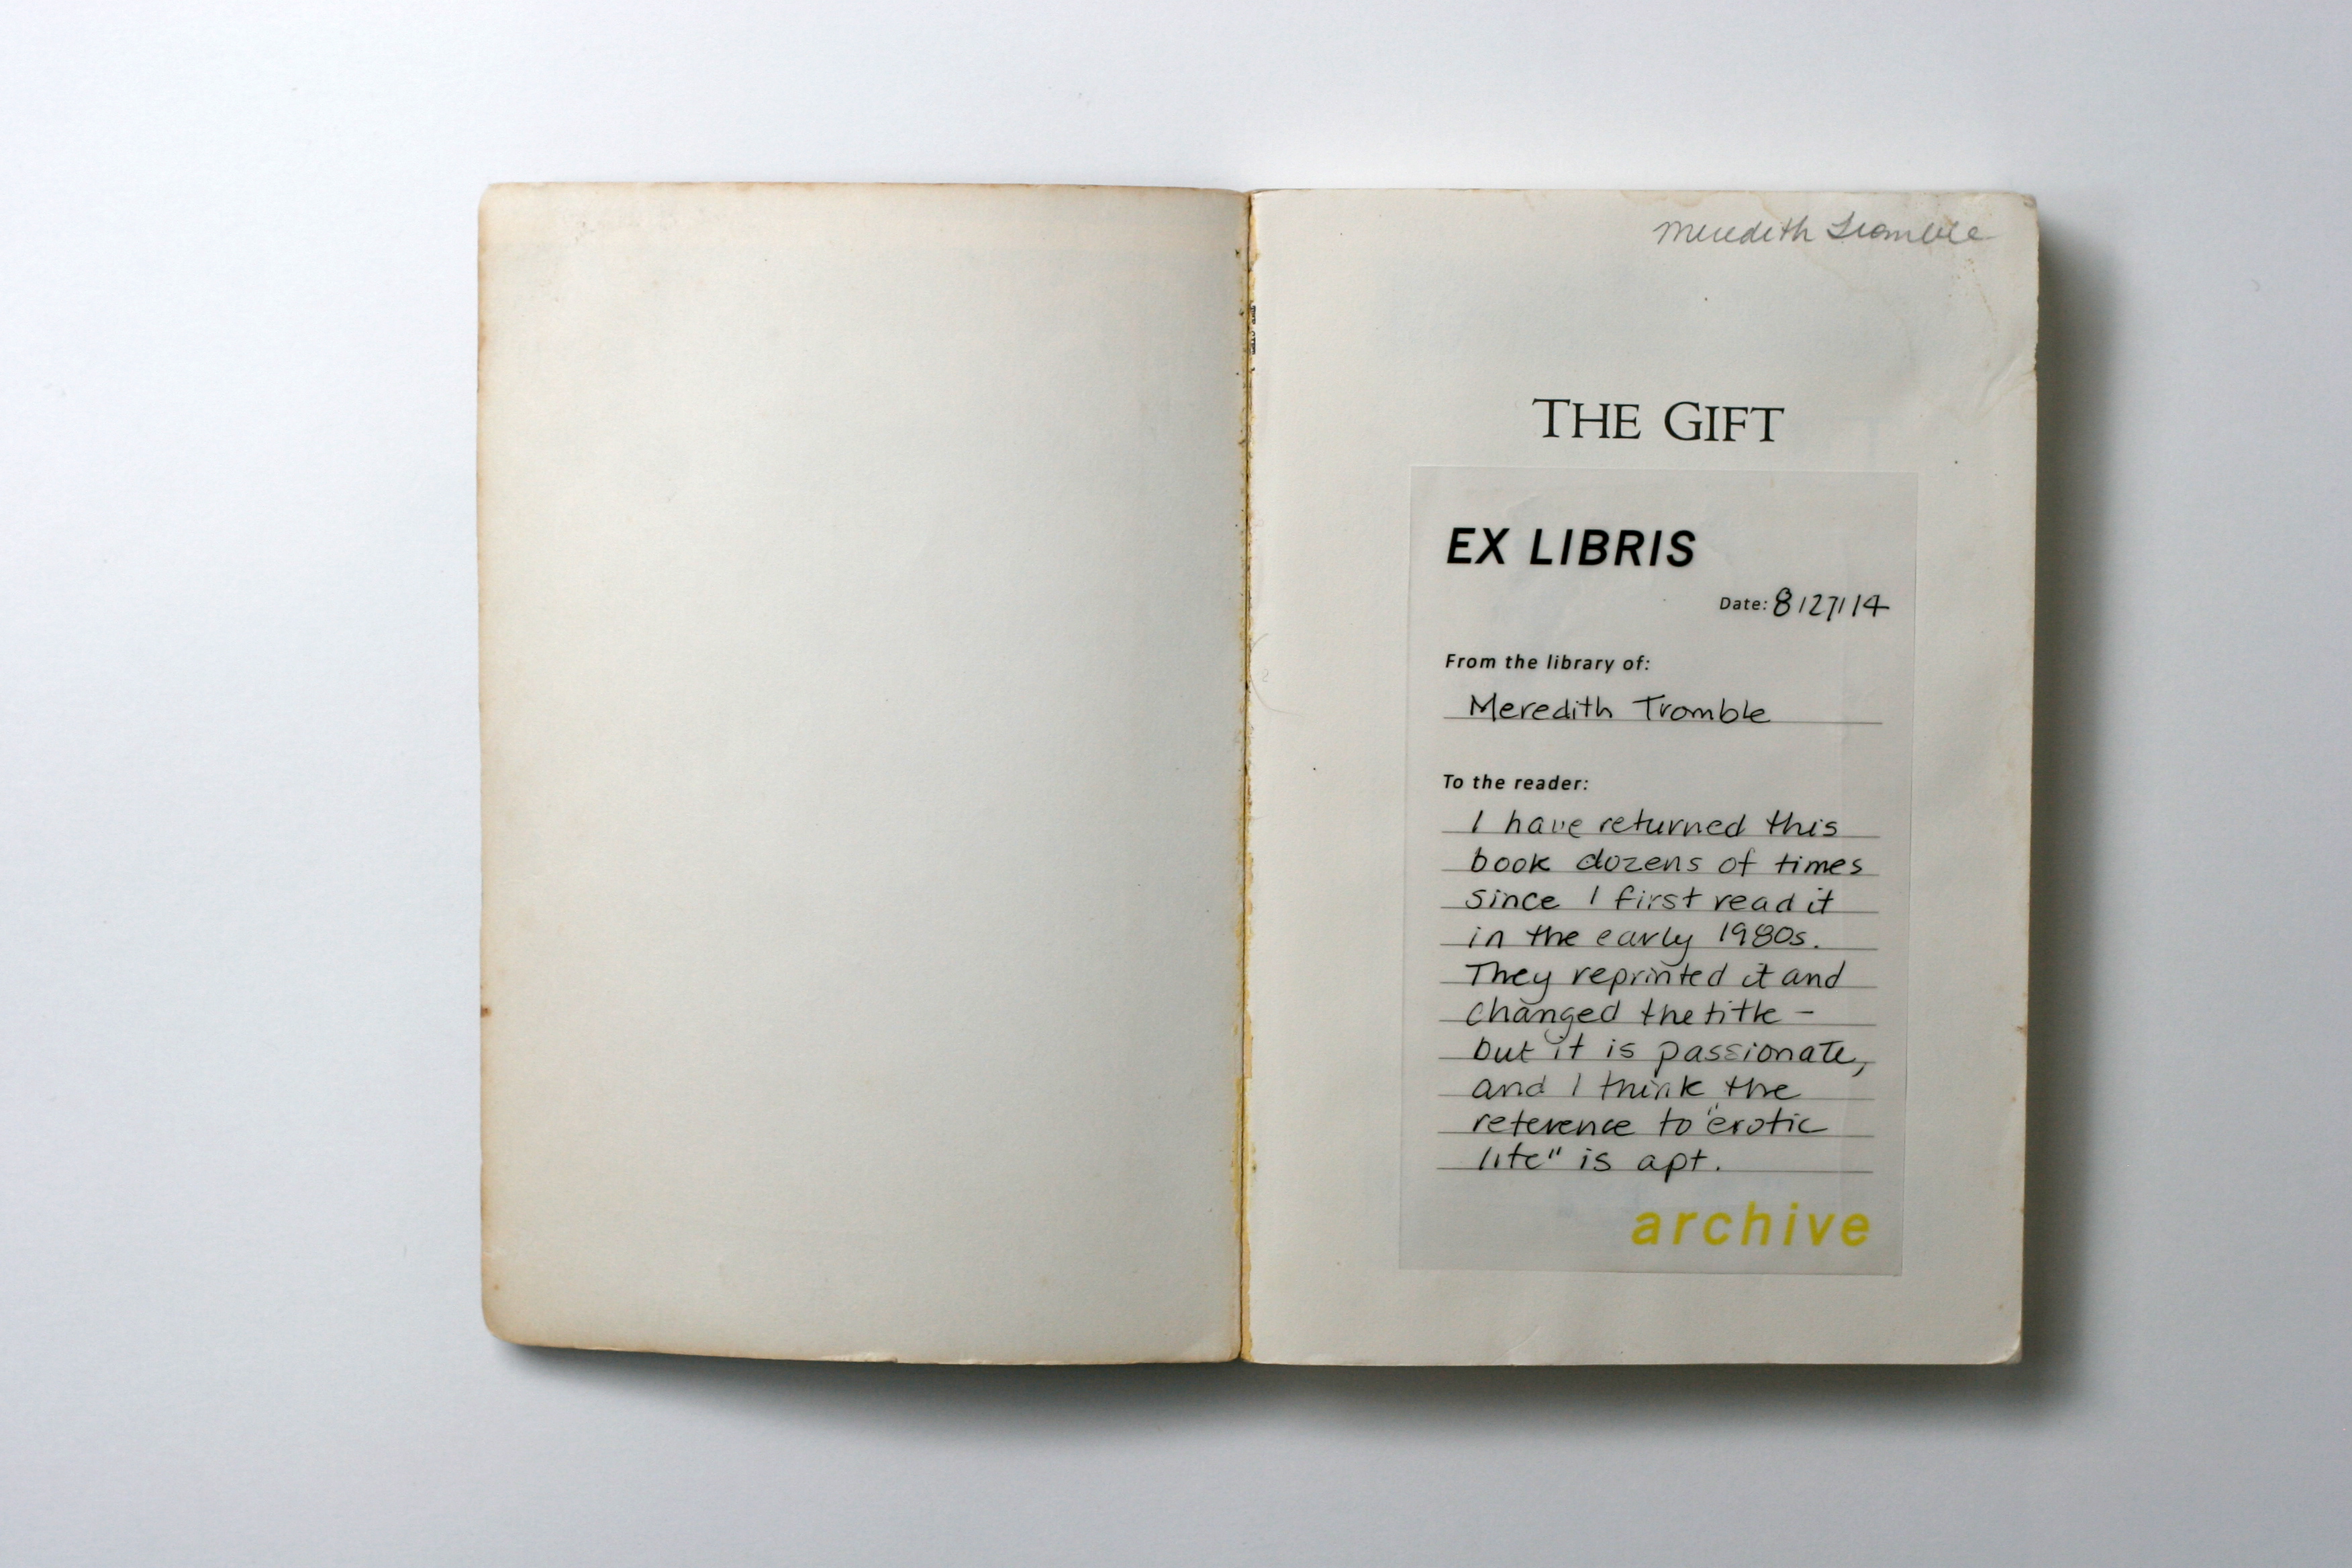 Meredith Tromble
THE GIFT
EX LIBRIS
Date: 8/27/14
From the library of:
Meredith Tromble
To the reader:
I have returned this
book dozens of times
since I first read it
in the early 1980s.
They reprinted it and
changed the title –
but it is passionate,
and I think the
reference to "erotic
life" is apt.
archive